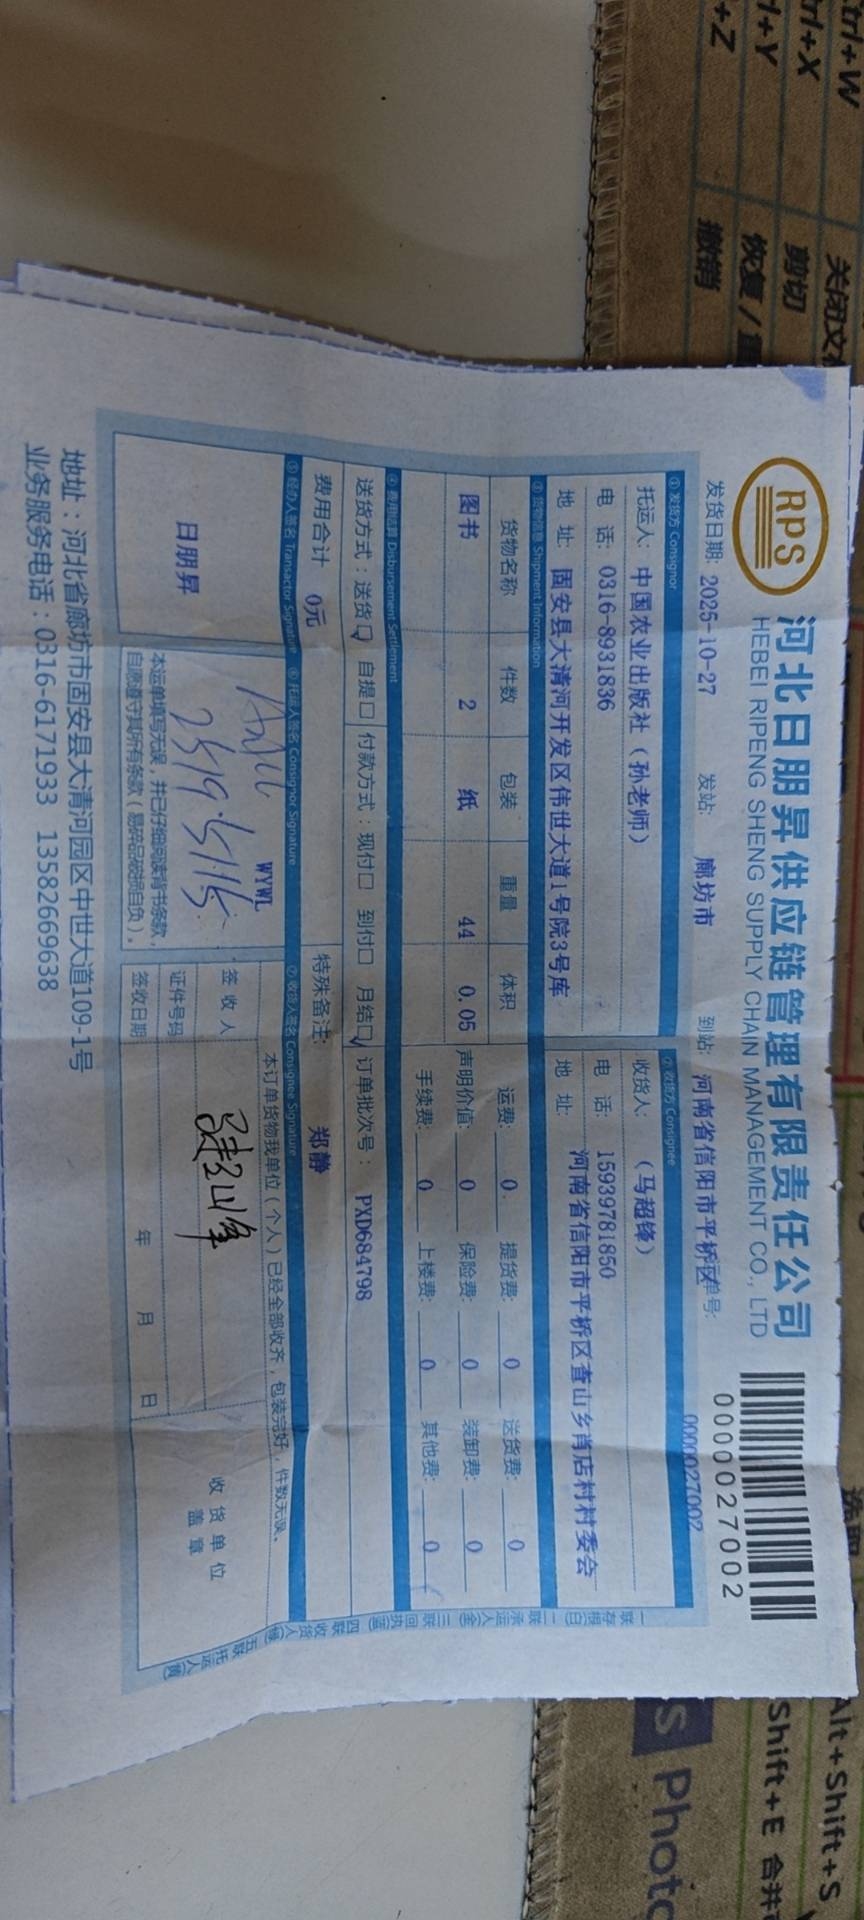 RPS
河北日朋昇供应链管理有限责任公司
HEBEI RIPENG SHENG SUPPLY CHAIN MANAGEMENT CO., LTD
0000027002
发货日期: 2025-10-27 发站: 廊坊市 到站: 河南省信阳市平桥区 单号: 0000027002
① 发货方 Consignor
托运人: 中国农业出版社（孙老师）
电 话: 0316-8931836
地 址: 固安县大清河开发区伟世大道1号院3号库
② 收货方 Consignee
收货人: （马超锋）
电 话: 15939781850
地 址: 河南省信阳市平桥区查山乡肖店村村委会
③ 货物信息 Shipment Information
货物名称 件数 包装 重量 体积
图书 2 纸 44 0.05
运费: 0 提货费: 0 送货费: 0
声明价值: 0 保险费: 0 装卸费: 0
手续费: 0 上楼费: 0 其他费: 0
④ 费用结算 Disbursement Settlement
送货方式：送货☑ 自提□ 付款方式：现付□ 到付□ 月结☑ 订单批次号： PXD684798
费用合计 0元 特殊备注: 郑静
⑤ 经办人签名 Transactor Signature ⑥ 托运人签名 Consignor Signature ⑦ 收货人签名 Consignee Signature
日朋昇
WYWL
本运单填写无误，并已仔细阅读背书条款，
自愿遵守其所有条款（易碎品破损自负）。
本订单货物我单位（个人）已经全部收齐，包装完好，件数无误。
签 收 人
证件号码
签收日期 年 月 日
收货单位
盖 章
一联存根(白) 二联承运人(金) 三联回执(蓝) 四联收货人(绿) 五联托运人(黄)
地址：河北省廊坊市固安县大清河园区中世大道109-1号
业务服务电话：0316-6171933 13582669638
Ctrl+X
剪切
撤销
恢复
Alt+Shift+S
Shift+E